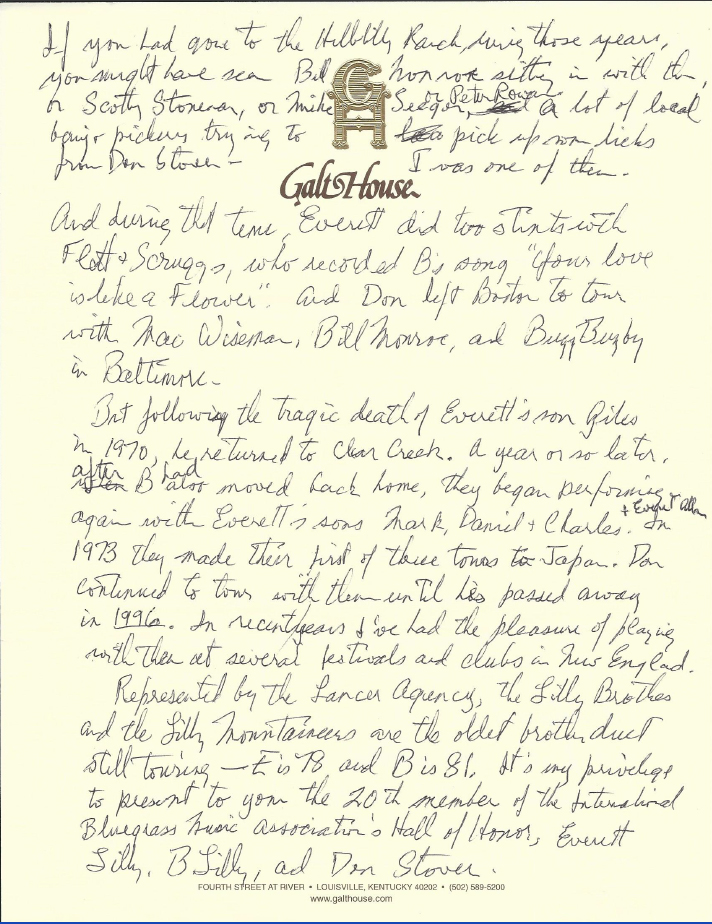 If you had gone to the Hillbilly Ranch, during those years,
you might have seen Bill Monroe sitting in with them,
or Scotty Stoneman, or Mike Seeger, or Peter Rowan a lot of local
banjo pickers trying to pick up some licks
from Don Stover – I was one of them.
GH
Galt House
And during that time, Everett did too stints with
Flatt & Scruggs, who recorded B's song "Your love
is like a Flower". And Don left Boston to tour
with Mac Wiseman, Bill Monroe, and Buzz Buzby
in Baltimore.
But following the tragic death of Everett's son Giles
in 1970, he returned to Clear Creek. A year or so later,
after B had also moved back home, they began performing
again with Everett's sons Mark, Daniel + Charles. + Everett Alan In
1973 they made their first of three tours to Japan. Don
continued to tour with them until he passed away
in 1996. In recent years I've had the pleasure of playing
with them at several festivals and clubs in New England.
Represented by the Lancer Agency, the Lilly Brothers
and the Lilly Mountaineers are the oldest brother duet
still touring – E is 78 and B is 81. It's my privilege
to present to you the 20th member of the International
Bluegrass Music Association's Hall of Honor, Everett
Lilly, B Lilly, and Don Stover.
FOURTH STREET AT RIVER • LOUISVILLE, KENTUCKY 40202 • (502) 589-5200
www.galthouse.com